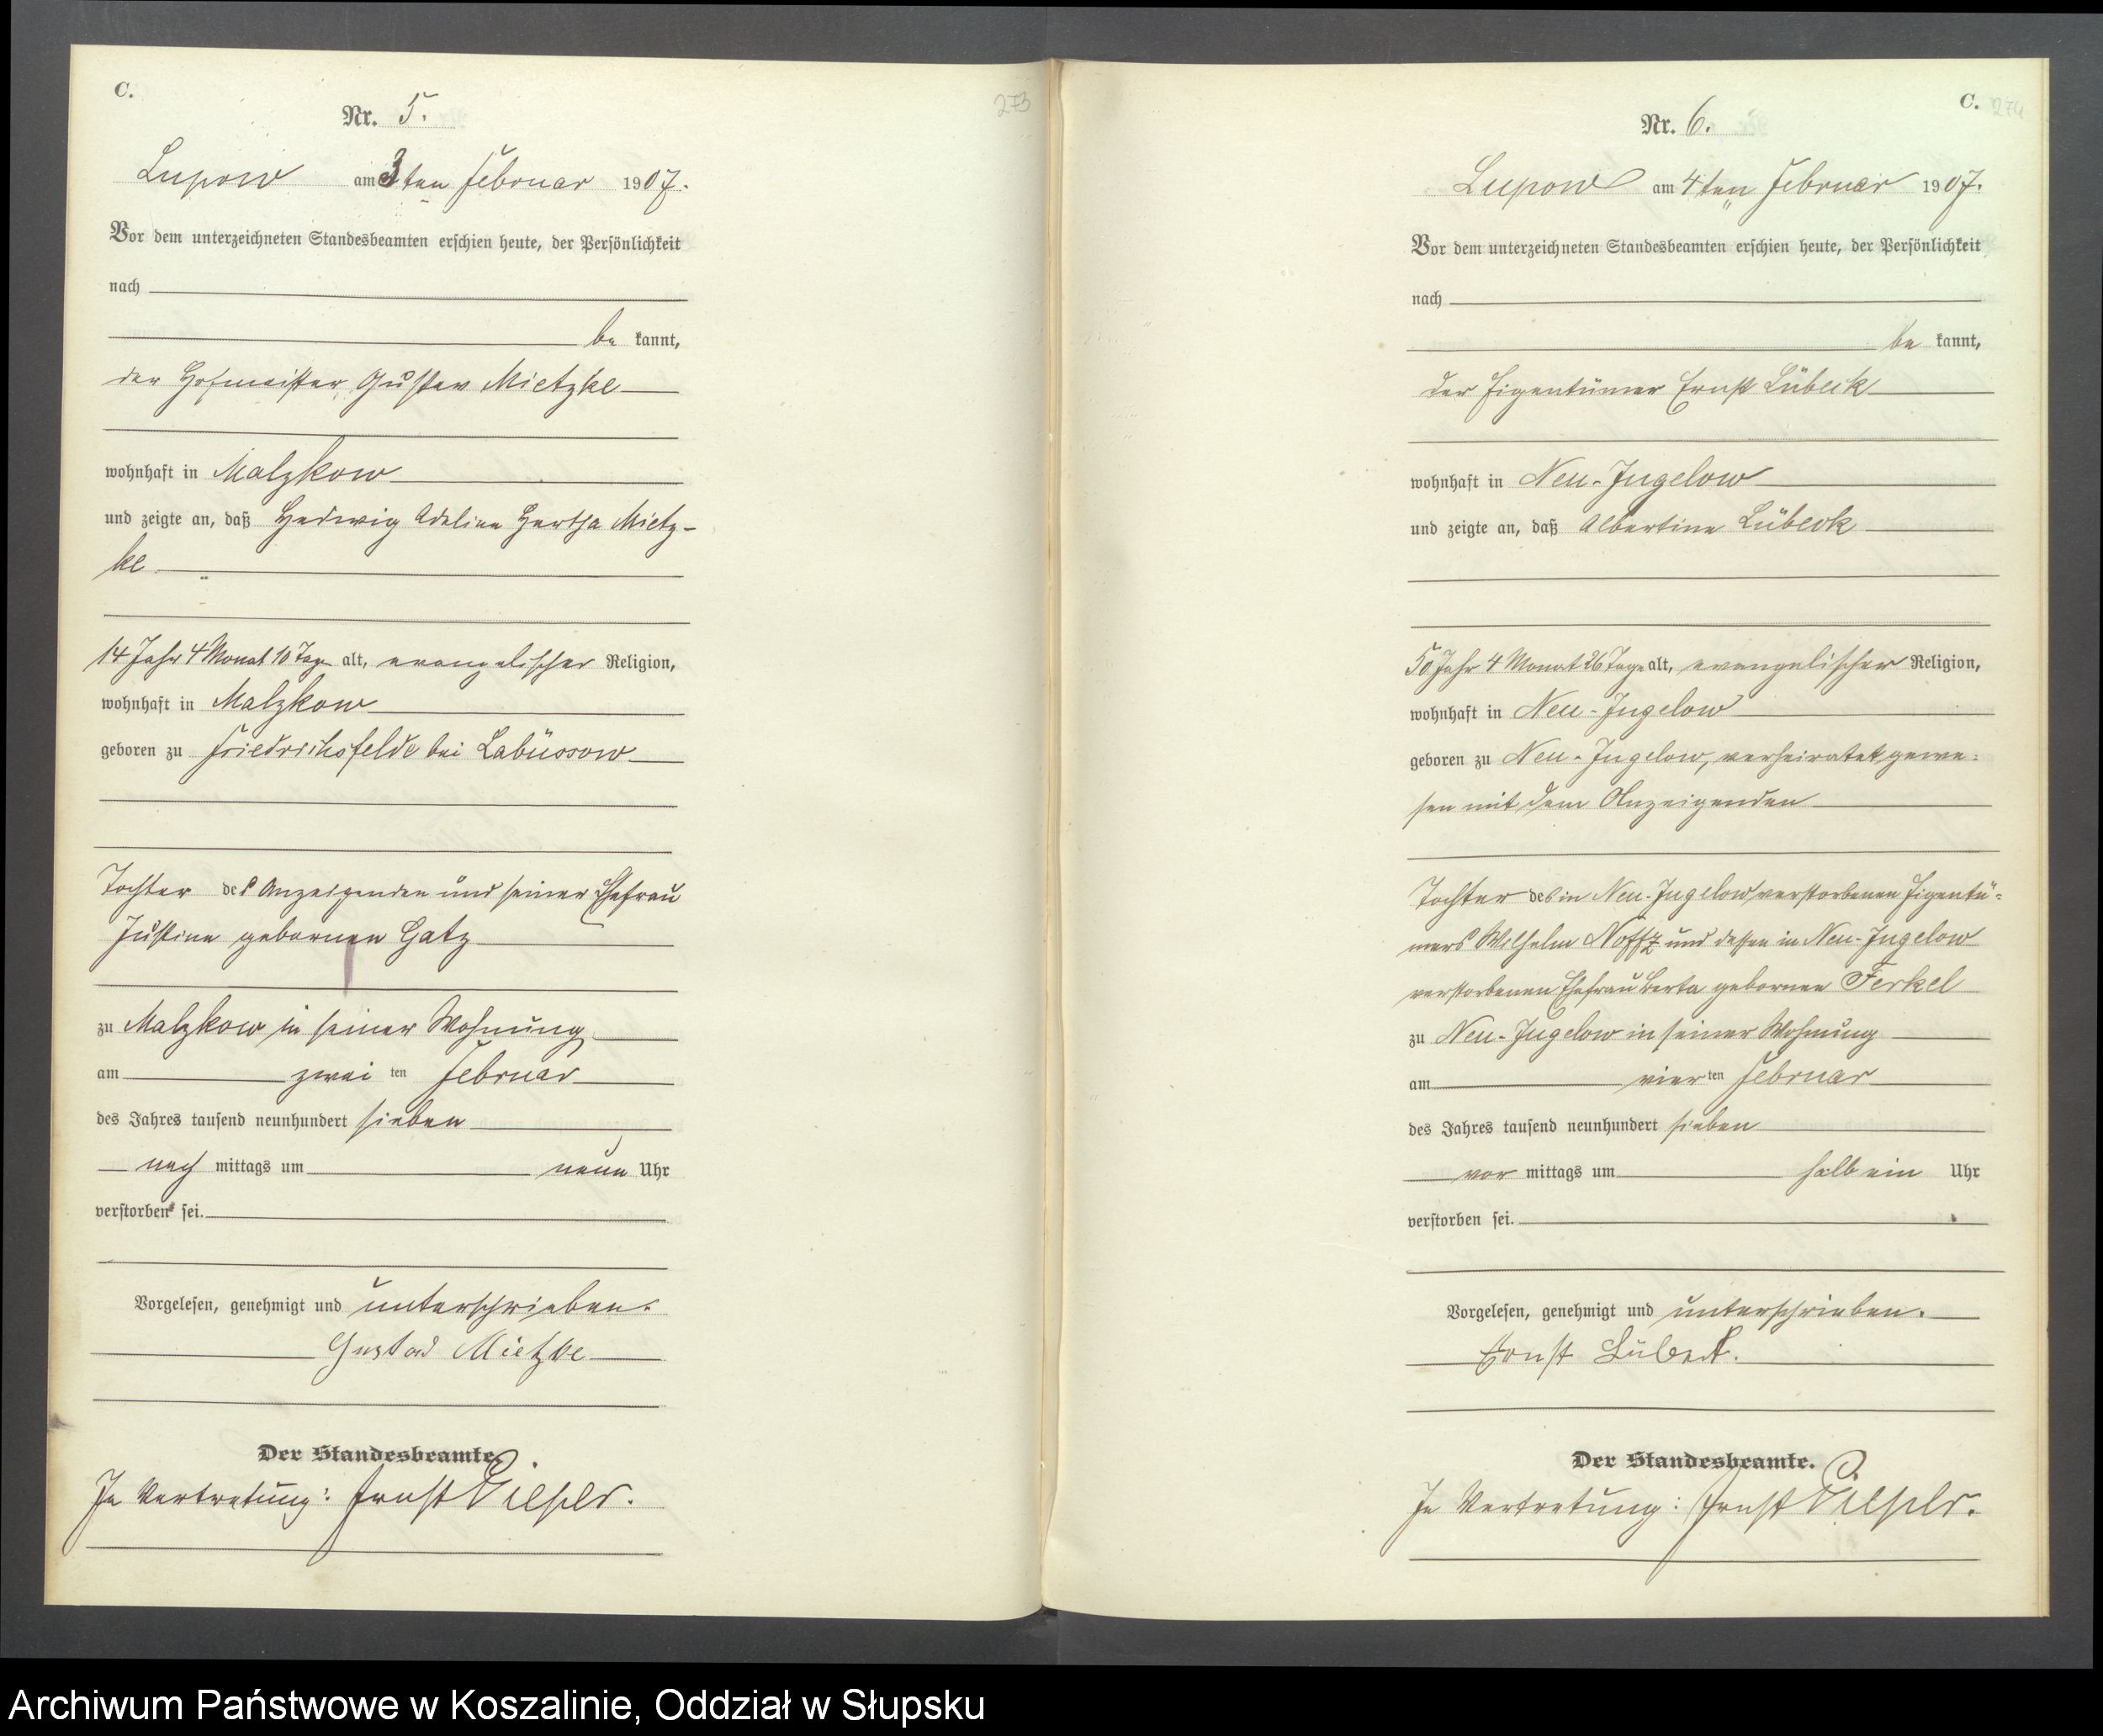 C.
273
Nr. 5.
Lupow am 3ten Februar 1907.
Vor dem unterzeichneten Standesbeamten erschien heute, der Persönlichkeit
nach
be kannt,
der Hofmeister, Gustav Mietzke
wohnhaft in Malzkow
und zeigte an, daß Hedwig Adeline Hertha Mietz-
ke
14 Jahr 4 Monat 10 Tage alt, evangelischer Religion,
wohnhaft in Malzkow
geboren zu Friedrichsfelde bei Labüssow
Tochter des Anzeigenden und seiner Ehefrau
Justine gebornen Gatz
zu Malzkow in seiner Wohnung
am zwei ten Februar
des Jahres tausend neunhundert sieben
nach mittags um neun Uhr
verstorben sei.
Vorgelesen, genehmigt und unterschrieben.
Gustav Mietzke
Der Standesbeamte.
In Vertretung: Ernst
C. 274
Nr. 6.
Lupow am 4ten Februar 1907.
Vor dem unterzeichneten Standesbeamten erschien heute, der Persönlichkeit
nach
be kannt,
der Eigentümer Ernst Lübeck
wohnhaft in Neu-Jugelow
und zeigte an, daß Albertine Lübeck
50 Jahr 4 Monat 26 Tage alt, evangelischer Religion,
wohnhaft in Neu-Jugelow
geboren zu Neu-Jugelow, verheiratet gewe-
sen mit dem Anzeigenden
Tochter des in Neu-Jugelow verstorbenen Eigentü-
mers Wilhelm Noffz und dessen in Neu-Jugelow
verstorbenen Ehefrau Berta gebornen Ferkel
zu Neu-Jugelow in seiner Wohnung
am vier ten Februar
des Jahres tausend neunhundert sieben
vor mittags um halb ein Uhr
verstorben sei.
Vorgelesen, genehmigt und unterschrieben.
Ernst Lübeck.
Der Standesbeamte.
In Vertretung: Ernst
Archiwum Państwowe w Koszalinie, Oddział w Słupsku